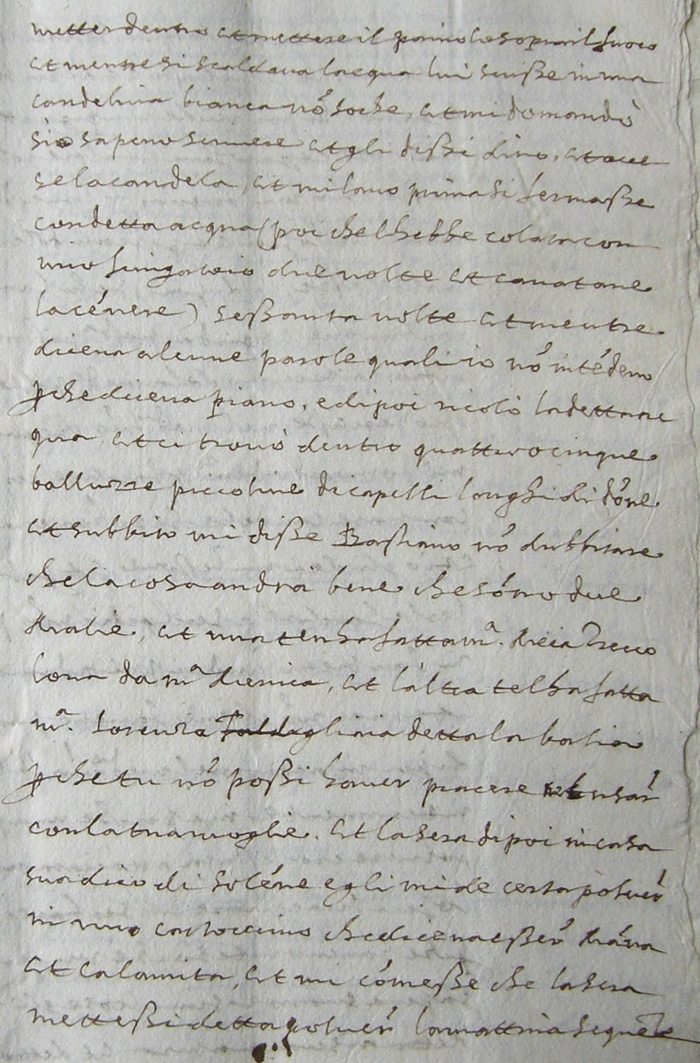 metter dentro et mettere il paiuolo sopra il fuoco
et mentre si scaldava lacqua lui scrisse in una
candelina bianca nō so che, et mi domandò
sio sapevo scrivere et gli dissi di no, et
se la candela, et mi lavo prima si fermasse
con detta acqua (poi che lhebbe colata con
uno sciugatoio due volte et cavatone
la cénere) sessanta volte et mentre
diceva alcune parole quali io nō intēdevo
pche diceva piano, e di poi ricolò la detta ac
qua et ci trovò dentro quattro o cinque
balluzze piccoline di capelli longhi di dōne
et subbito mi disse Bastiano nō dubbitare
che la cosa andrà bene che sōno due
malie, et una te nha fatta mª.
lona da mª et laltra telha fatta
mª. Lorenza detta la
pche tu nō possi haver piacere
con la tua moglie. et la sera di poi in casa
sua dico di egli mi de certa polver
in uno cartoccino che diceva esser
et calamita, et mi cōmesse che la sera
mettessi detta polver la mattina seguēte